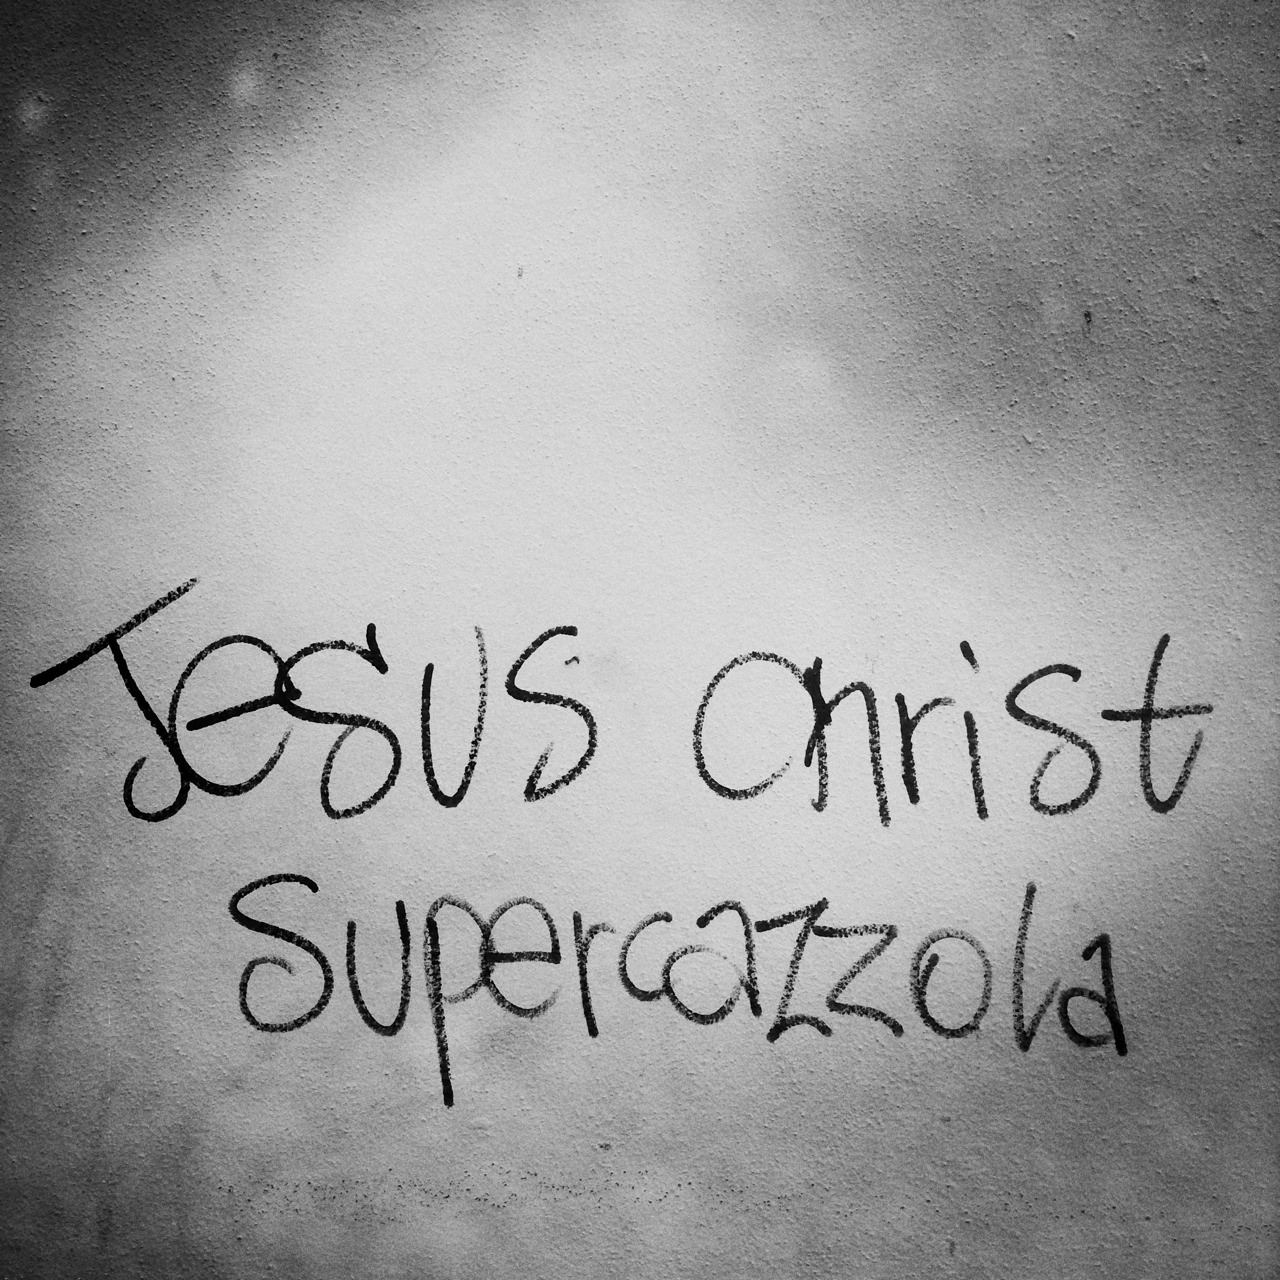 Jesus christ
supercazzola